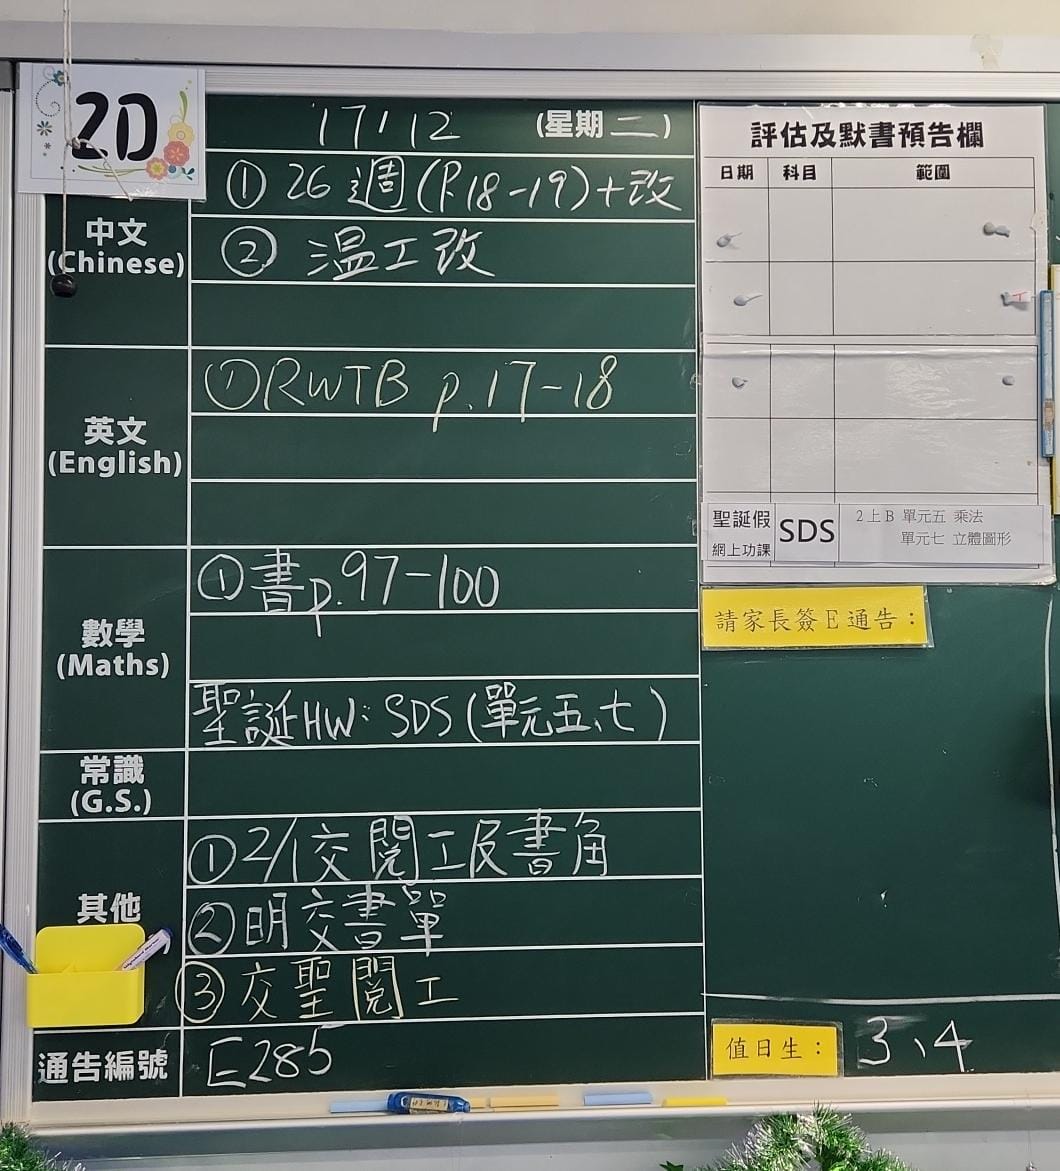 2D
17/12 (星期二)
中文
(Chinese)
① 26 週(P.18-19)+改
② 溫工改
英文
(English)
① RWTB p.17-18
數學
(Maths)
① 書p.97-100
聖誕HW: SDS(單元五、七)
常識
(G.S.)
其他
① 2/1交閱工及書角
② 明交書單
③ 交聖閱工
通告編號
E285
評估及默書預告欄
日期 科目 範圍
聖誕假
網上功課
SDS
2上B 單元五 乘法
單元七 立體圖形
請家長簽E通告：
值日生：
3、4